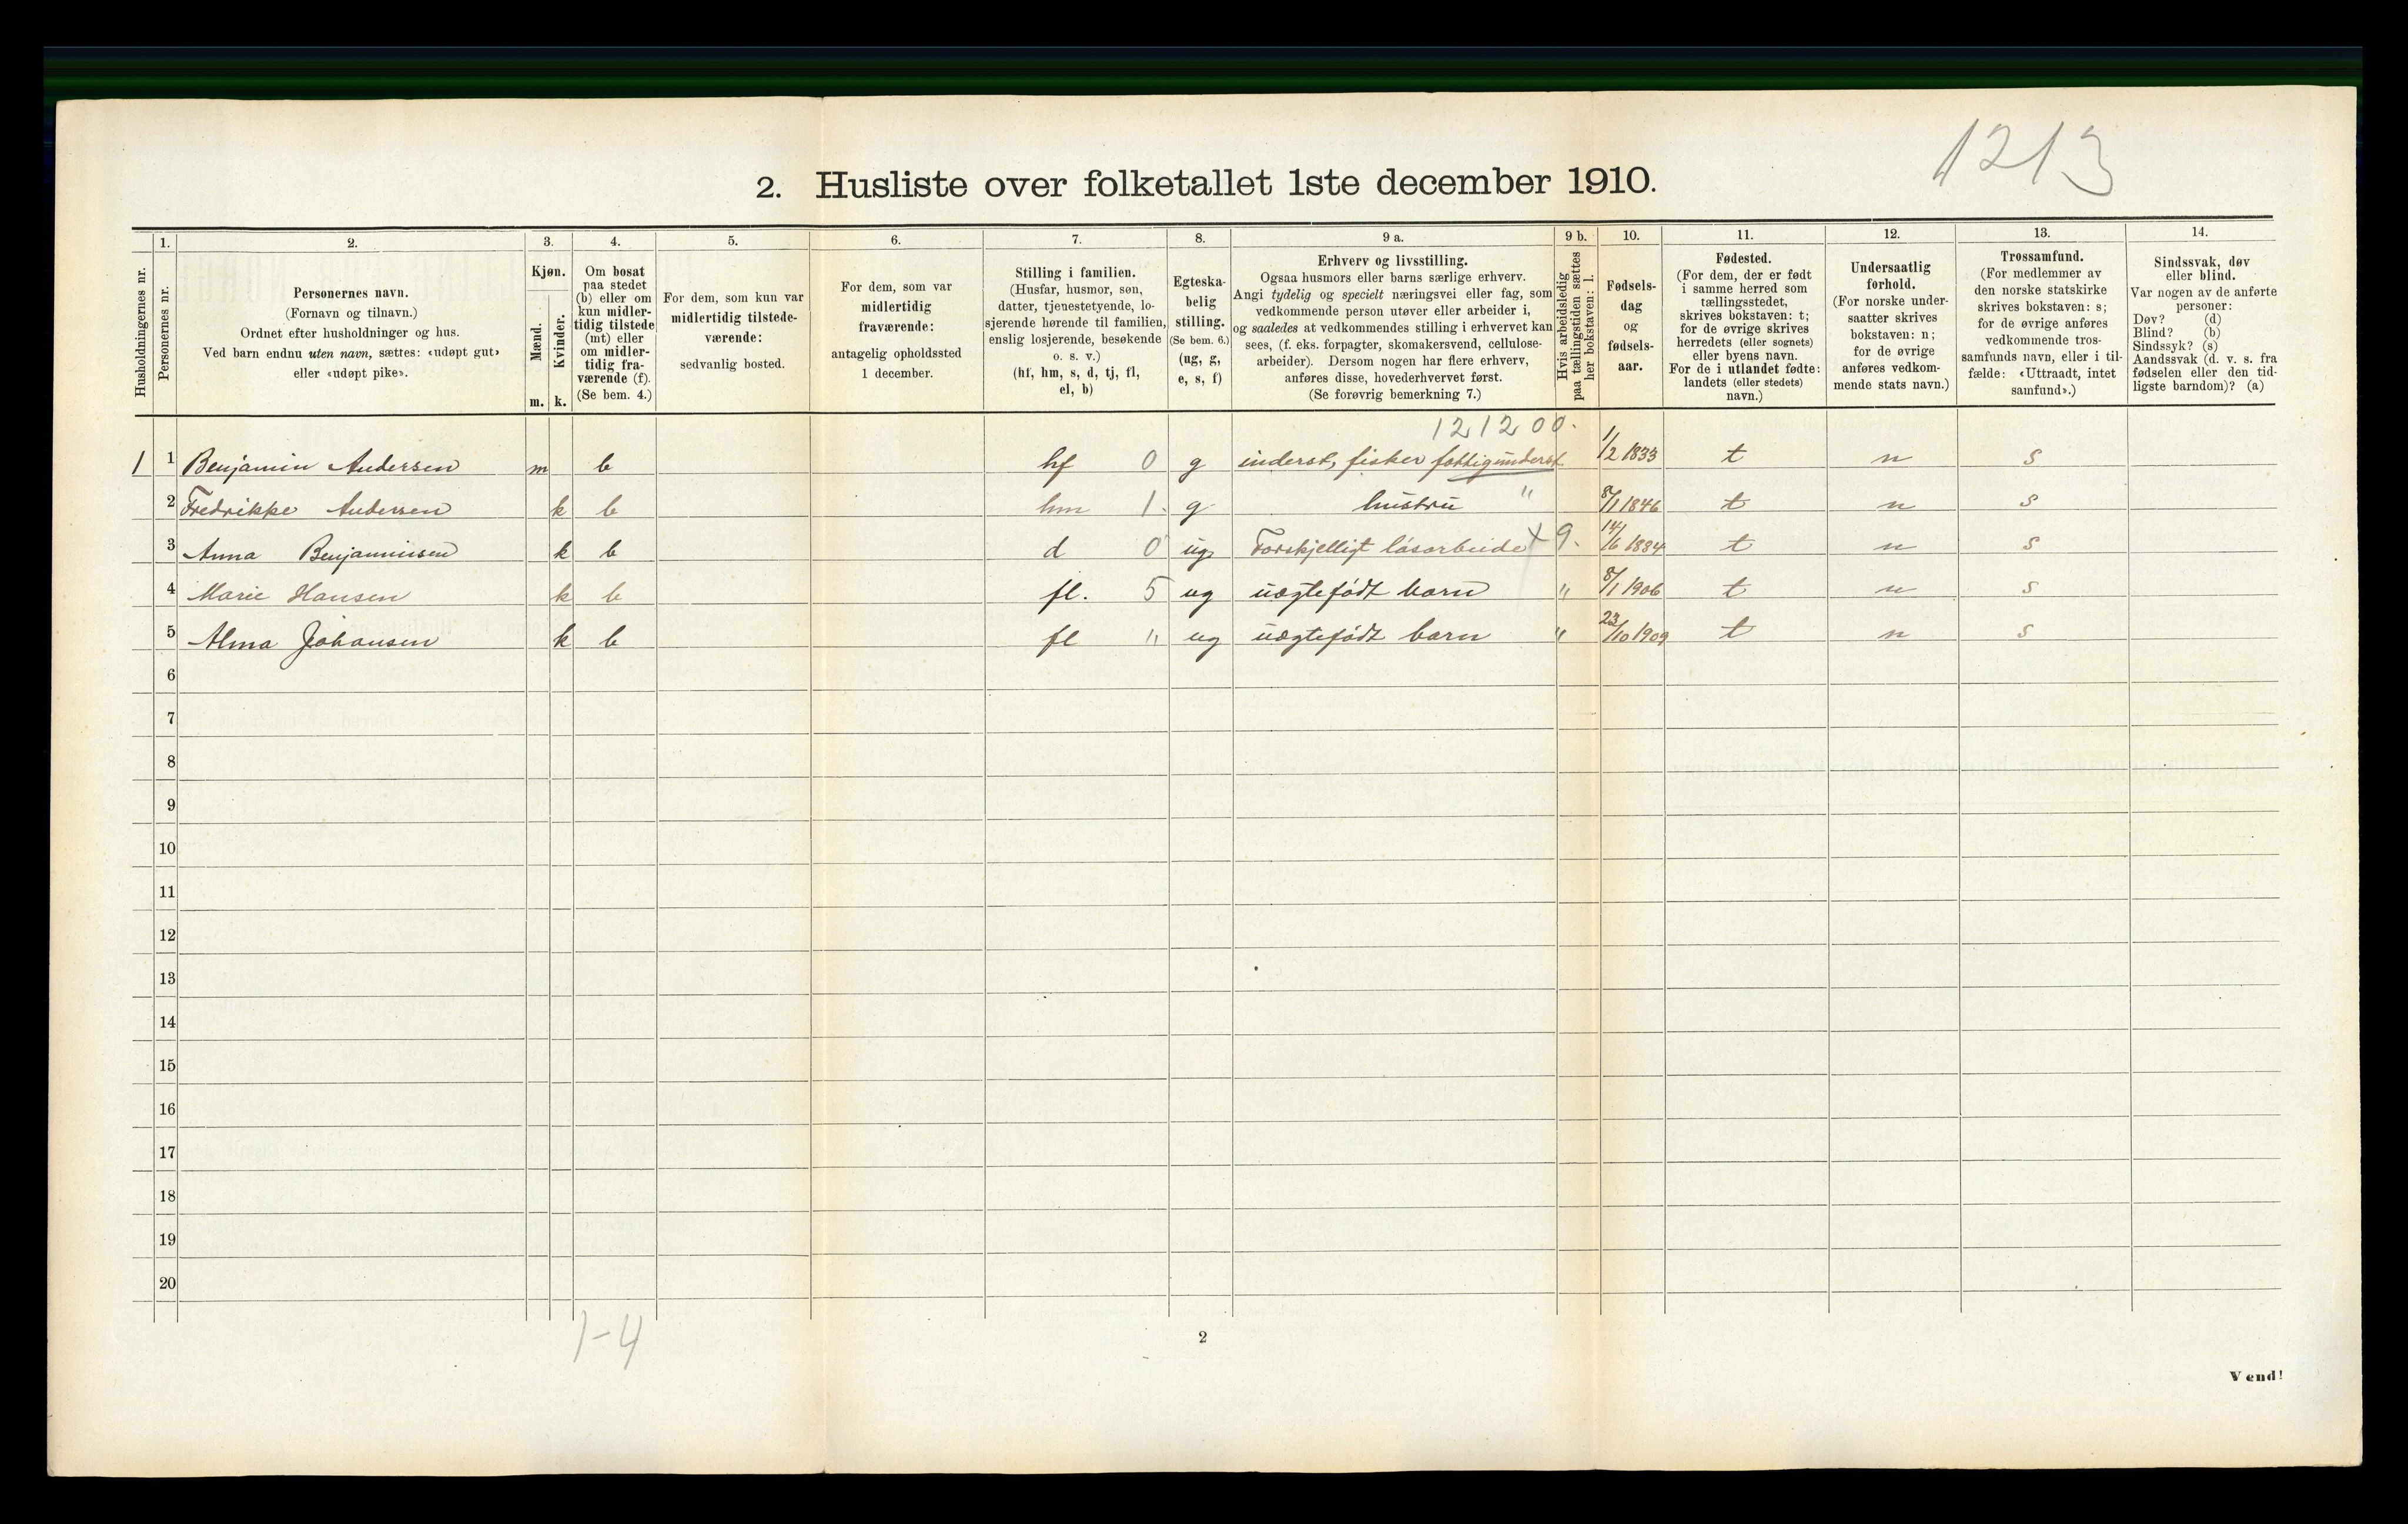 1213
2. Husliste over folketallet 1ste december 1910.
Husholdningernes nr.
1.
Personernes nr.
2.
Personernes navn.
(Fornavn og tilnavn.)
Ordnet efter husholdninger og hus.
Ved barn endnu uten navn, sættes: «udøpt gut»
eller «udøpt pike».
3.
Kjøn.
Mænd.
Kvinder.
m. k.
4.
Om bosat
paa stedet
(b) eller om
kun midler-
tidig tilstede
(mt) eller
om midler-
tidig fra-
værende (f).
(Se bem. 4.)
5.
For dem, som kun var
midlertidig tilstede-
værende:
sedvanlig bosted.
6.
For dem, som var
midlertidig
fraværende:
antagelig opholdssted
1 december.
7.
Stilling i familien.
(Husfar, husmor, søn,
datter, tjenestetyende, lo-
sjerende hørende til familien,
enslig losjerende, besøkende
o. s. v.)
(hf, hm, s, d, tj, fl,
el, b)
8.
Egteska-
belig
stilling.
(Se bem. 6.)
(ug, g,
e, s, f)
9 a.
Erhverv og livsstilling.
Ogsaa husmors eller barns særlige erhverv.
Angi tydelig og specielt næringsvei eller fag, som
vedkommende person utøver eller arbeider i,
og saaledes at vedkommendes stilling i erhvervet kan
sees, (f. eks. forpagter, skomakersvend, cellulose-
arbeider). Dersom nogen har flere erhverv,
anføres disse, hovederhvervet først.
(Se forøvrig bemerkning 7.)
9 b.
Hvis arbeidsledig
paa tællingstiden sættes
her bokstaven: l.
10.
Fødsels-
dag
og
fødsels-
aar.
11.
Fødested.
(For dem, der er født
i samme herred som
tællingsstedet,
skrives bokstaven: t;
for de øvrige skrives
herredets (eller sognets)
eller byens navn.
For de i utlandet fødte:
landets (eller stedets)
navn.)
12.
Undersaatlig
forhold.
(For norske under-
saatter skrives
bokstaven: n;
for de øvrige
anføres vedkom-
mende stats navn.)
13.
Trossamfund.
(For medlemmer av
den norske statskirke
skrives bokstaven: s;
for de øvrige anføres
vedkommende tros-
samfunds navn, eller i til-
fælde: «Uttraadt, intet
samfund».)
14.
Sindssvak, døv
eller blind.
Var nogen av de anførte
personer:
Døv? (d)
Blind? (b)
Sindssyk? (s)
Aandssvak (d. v. s. fra
fødselen eller den tid-
ligste barndom)? (a)
121200.
1 1 Benjamin Andersen m b hf 0 g inderst, fisker fattigunderst. 1/2 1833 t n s
2 Fredrikke Andersen k b hm 1. g hustru " 8/1 1846 t n s
3 Anna Benjaminsen k b d 0 ug Forskjelligt løsarbeide x 9. 14/6 1884 t n s
4 Marie Hansen k b fl. 5 ug uægtefødt barn " 8/1 1906 t n s
5 Alma Johansen k b fl " ug uægtefødt barn " 23/10 1909 t n s
6
7
8
9
10
11
12
13
14
15
16
17
18
19
20
1-4
2
Vend!